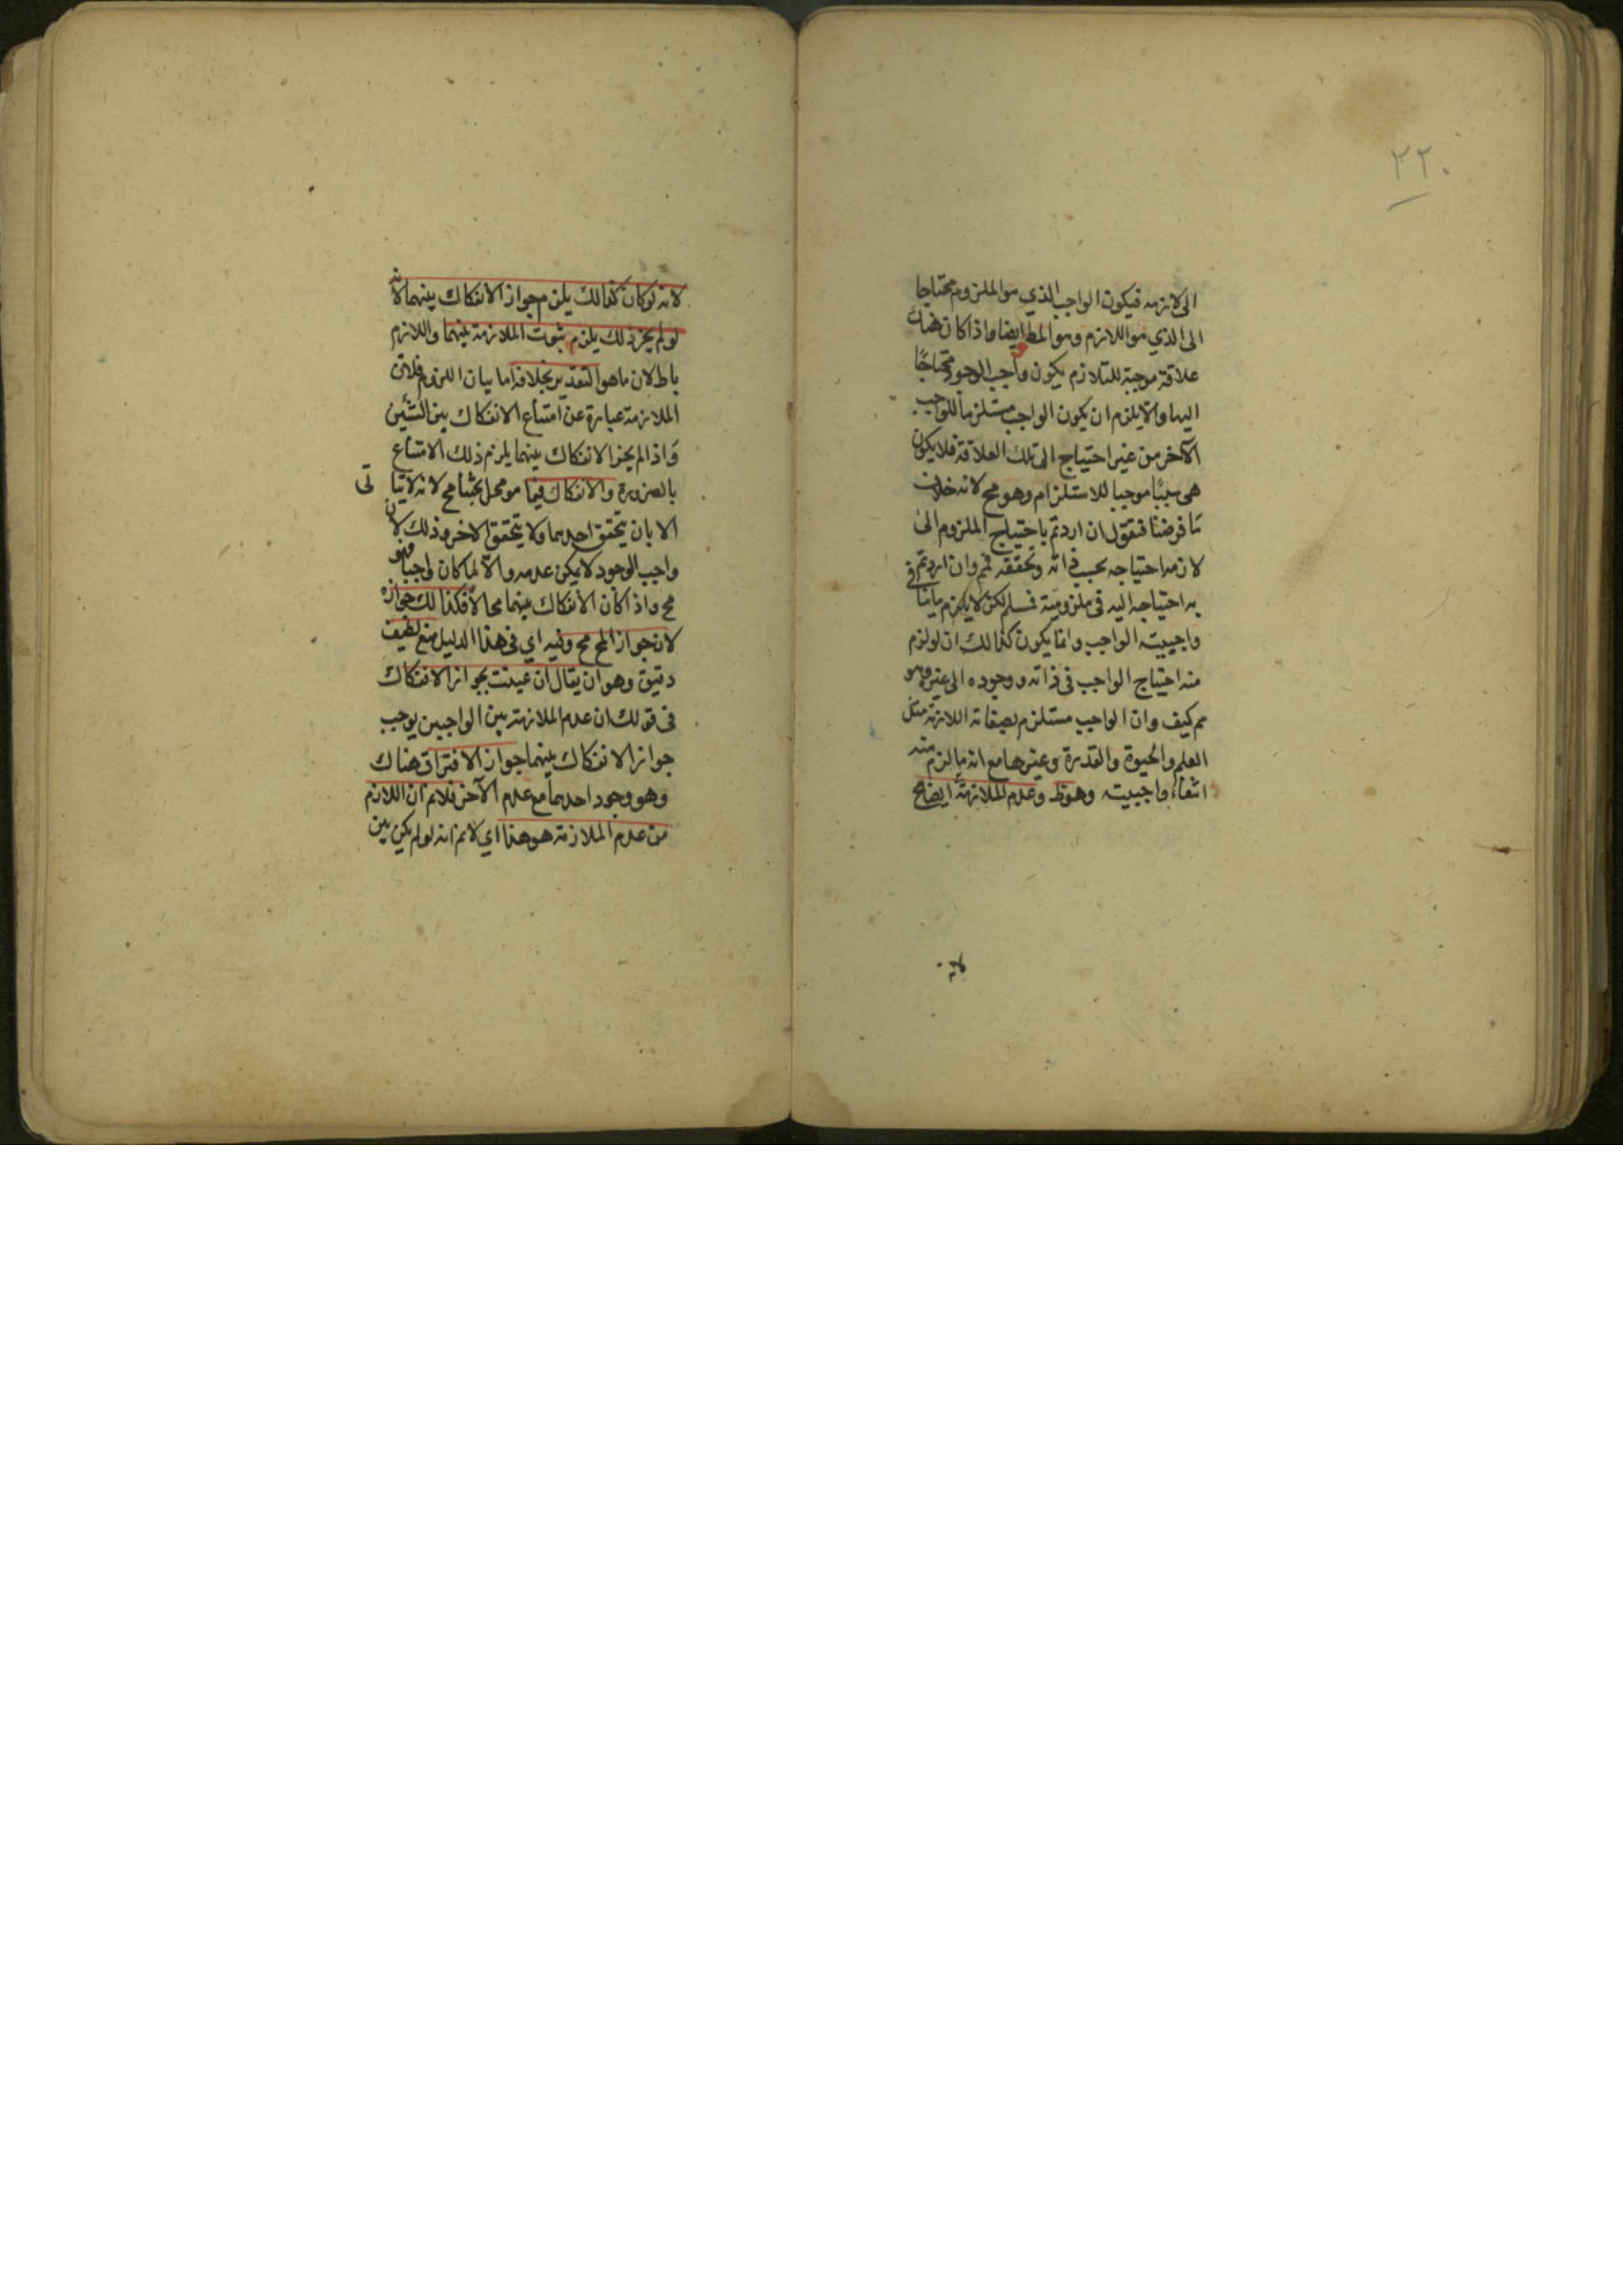 ٢٢٠
الى لازمه فيكون الواجب الذي هو الملزوم محتاجا
الى الذي هو اللازم وهو المط ايضا واذا كان هناك
علاقة موجبة للتلازم يكون واجب الوجود محتاجًا
اليها والا يلزم ان يكون الواجب مستلزما للواجب
الآخر من غير احتياج الى تلك العلاقة فلا يكون
هى سببًا موجبا للاستلزام وهو مح لانه خلاف
مَا فرضنا فنقول ان اردتم باحتياج الملزوم الى
لازمه احتياجه بحسب ذاته وتحققه فمم وان اردتم
به احتياجه اليه فى ملزوميته فمسلم لكن لا يلزم ما ينافى
واجبيته الواجب وانما يكون كذالك ان لو لزم
منه احتياج الواجب فى ذاته ووجوده الى غيره وهو
مم كيف وان الواجب مستلزم بصفاته اللازمة مثل
العلم والحيوة والقدرة وغيرها مع انه ما لزم منه
انتفاء واجبيته وهو ظ وعدم الملازمة ايضا مح
لانه
لانه لو كان كذالك يلزم جواز الانفكاك بينهما لانه
لو لم يجز ذلك يلزم ثبوت الملازمة بينهما واللازم
باطل لان ما هو التقدير بخلافه اما بيان اللزوم فلان
الملازمة عبارة عن امتناع الانفكاك بين الشئين
وَاذا لم يجز الانفكاك بينهما يلزم ذلك الامتناع
بالضرورة والانفكاك فيما هو محل بحثنا مح لانه لا يتاتى
الا بان يتحقق احدهما ولا يتحقق الاخر وذلك لان
واجب الوجود لا يمكن عدمه والا لما كان واجبا وهو
مح واذا كان الانفكاك بينهما محالا فكذالك جوازه
لان جواز المح مح وفيه اي فى هذا الدليل منع لطيف
دقيق وهو ان يقال ان عينت بجواز الانفكاك
فى قولك ان عدم الملازمة بين الواجبين يوجب
جواز الانفكاك بينهما جواز الافتراق هناك
وهو وجود احدهما مع عدم الآخر فلانم ان اللازم
من عدم الملازمة هو هذا اي لانم انه لو لم يكن بين